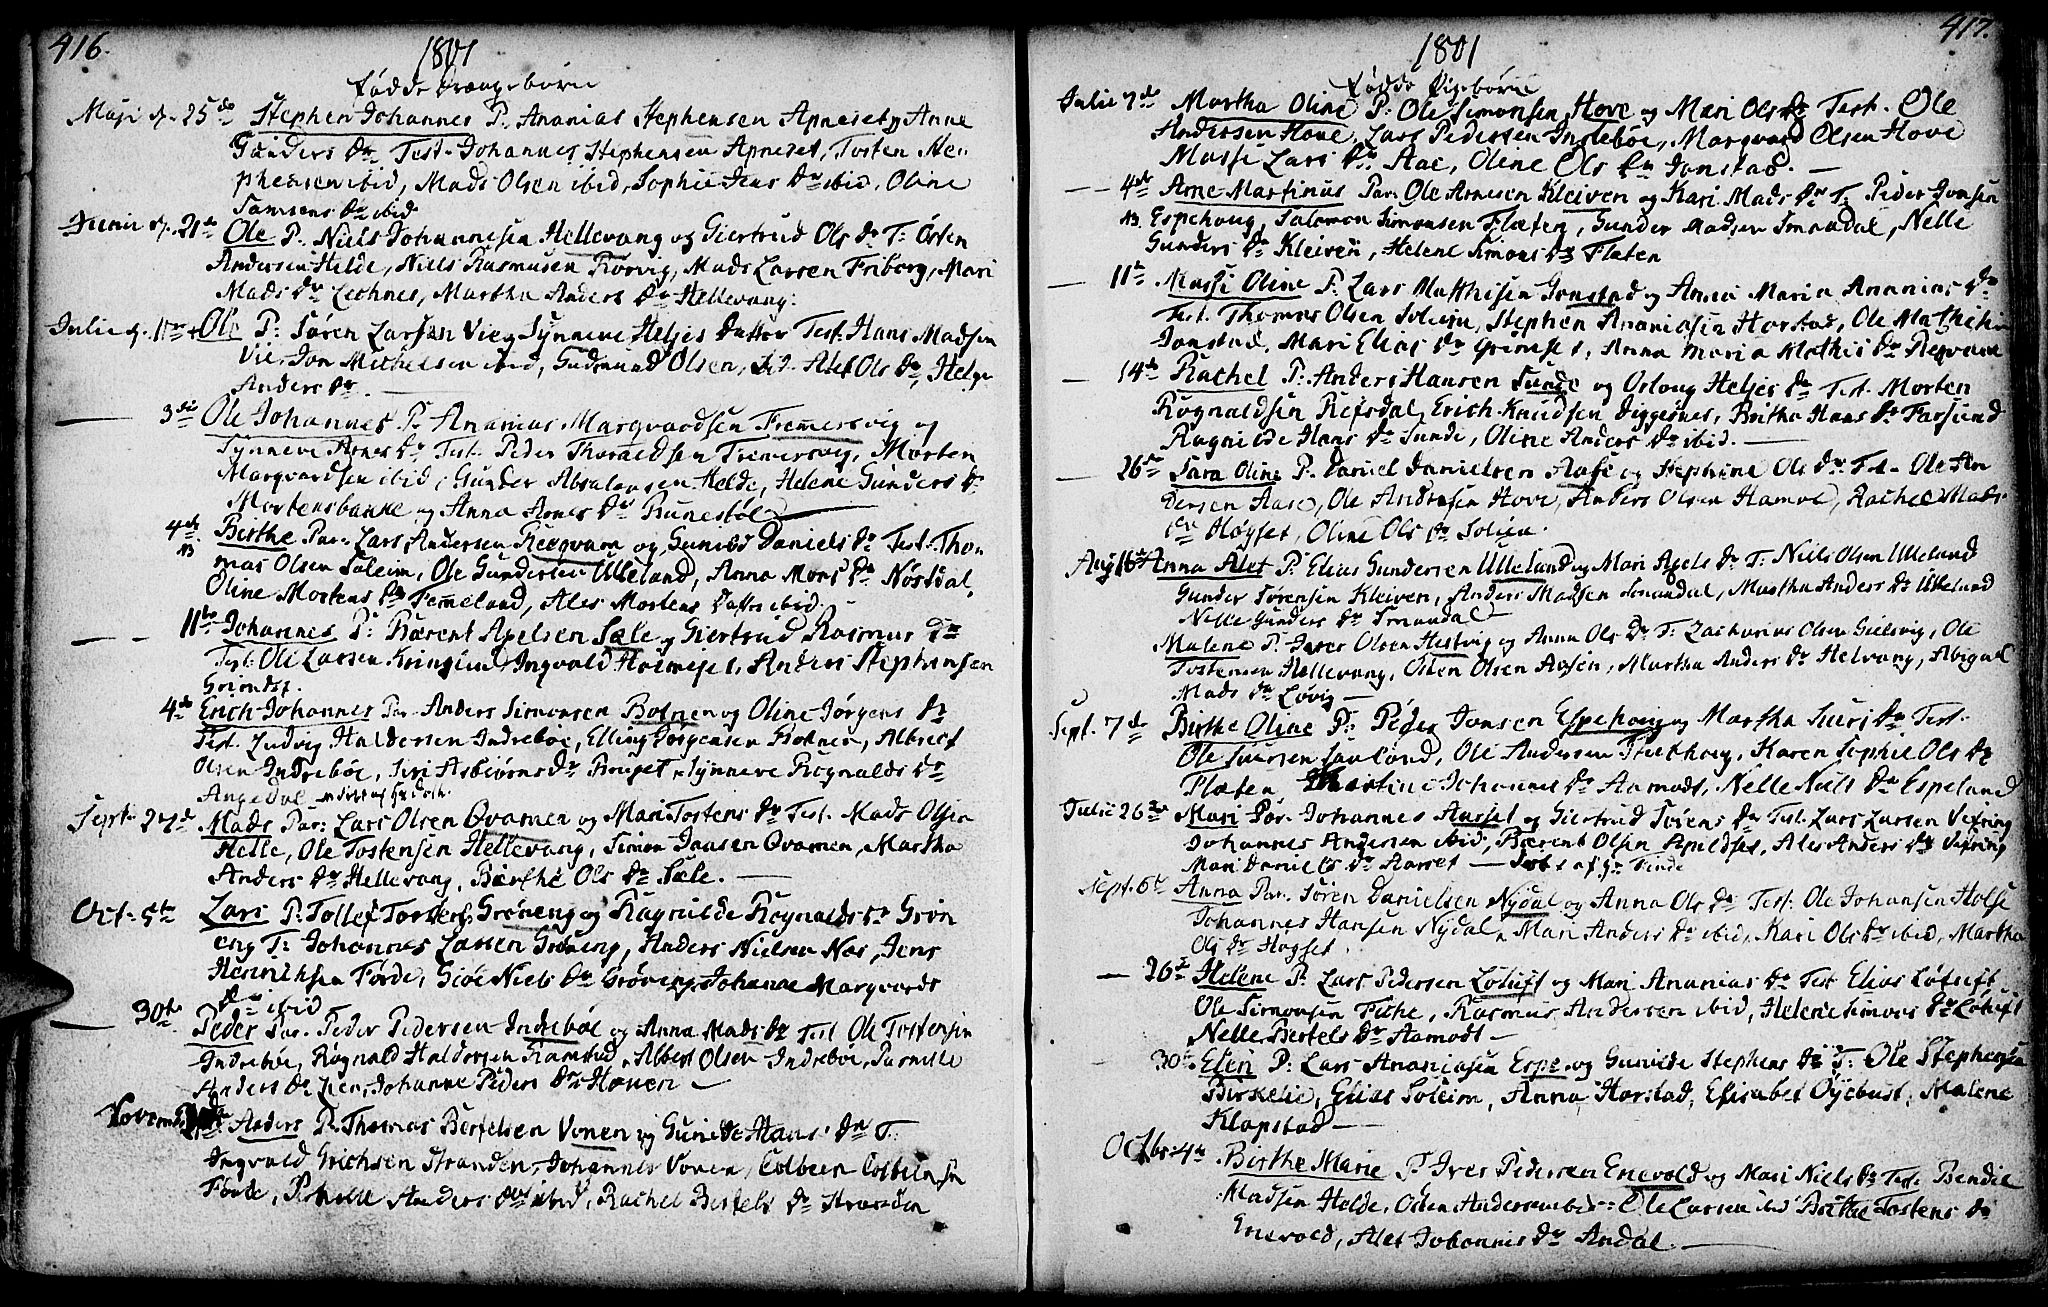 416.
1801
Fødde Drengebørn
Maji d. 25de Stephen Johannes P. Ananias Stephensen Apneset Anne
Gunders Dr Test. Johannes Stephensen Apneset, Tosten Ste-
phensen ibid, Mads Olsen ibid, Sophie Jens Dr ibid, Oline
Samsens Dr ibid
Junii d. 21de Ole P. Niels Johannesen Hellevang og Giertrud Ols Dr T: Østen
Andersen Helde, Niels Rasmusen Rørvig, Mads Larsen Friborg, Mari
Mads Dr Lechnes, Martha Anders Dr Hellevang.
Julie d. 11te Ole P: Søren Larsen Vie og Synneve Heljes Datter Test. Hans Madsen
Vie, Jon Michelsen ibid, Gudmund Olsen, ibid. Alet Ols Dr, Helge
Anders Dr.
3die Ole Johannes P. Ananias Marqvardsen Fremersvig og
Synneve Arnes Dr Test. Peder Thoraldsen Fremersvig, Morten
Marqvardsen ibid, Gunder Absalonsen Helde, Helene Gunders Dr
Mortensbakke og Anna Arnes Dr Runestøl
4de Birthe Par. Lars Andersen Reqvam og Gunild Daniels Dr Test. Tho-
NB mas Olsen Soleim, Ole Gundersen Ulleland, Anna Mons Dr Nøstdal,
Oline Mortens Dr Femmeland, Ales Mortens Datter ibid.
11te Johannes P: Bærent Apelsen Sæle og Giertrud Rasmus Dr
Test. Ole Larsen Kringlund, Ingvald Heimeset, Anders Stephensen
Grimdset.
4de Erich Johannes Par. Anders Simonsen Botnen og Oline Jørgens Dr
Test. Ludvig Haldorsen Indrebøe, Elling Jørgensen Botnen, Albrect
Olsen Indrebøe, Siri Asbiørns Dr Bruset, Synneve Rognalds Dr
Angedal
Sept. 27d Mads Par: Lars Olsen Qvamen og Mari Tostens Dr Test. Mads Olsen
Helle, Ole Tostensen Hellevang, Simon Jansen Qvamen, Martha
Anders Dr Hellevang, Berthe Ols Dr Sæle.
Oct. 5te Lars P. Tollef Torders. Grøneng og Ragnilde Rognalds Dr Grøn
eng T: Johannes Larsen Grøneng, Anders Nielsen Nes, Jens
Henriksen Førde, Giøe Niels Dr Grøneng, Johanne Marqvards
Dr ibid
30te Peder Par. Peder Pedersen Indrebøe og Anna Mads Dr Test Ole Tostensen
Indrebøe, Rognald Haldorsen Ramstad, Albert Olsen Indrebøe, Pernille
Anders Dr Lien, Johanne Peders Dr Hoven
Novemb. Anders P. Thomas Bertelsen Vonen og Gunilde Hans Dr T:
Ingvald Erichsen Stranden, Johannes Vonen, Colbeen Colbeensen
Førde, Pernille Anders Dr ibid, Rachel Bertels Dr Stranden
417.
1801
Fødde Pigebørn
Julie 7de Martha Oline P: Ole Simonsen Hove og Mari Ols Dr Test. Ole
Andersen Hove, Lars Pedersen Indrebøe, Marqvard Olsen Hove
Massi Lars Dr Aae, Oline Ols Dr Jonstad.
4de Arne Martinus Par. Ole Arnesen Kleiven og Kari Mads Dr T: Peder Jonsen
NB. Espehoug, Salomon Simonsen Flæten, Gunder Madsen Smaadal, Nelle
Gunders Dr Kleiven, Helene Simons Dr Flæten
11te Massi Oline P. Lars Matthisen Jonstad og Anna Maria Ananias Dr
Test. Thomas Olsen Soleim, Stephen Ananiasen Horstad, Ole Mathisen
Jonstad, Mari Elias Dr Grimset, Anna Maria Mathis Dr Reqvam
14de Rachel P: Anders Hansen Sunde og Orloug Heljes Dr Test. Morten
Rognaldsen Refsdal, Erich Knudsen Diggernes, Britha Hans Dr Farsund
Ragnilde Hans Dr Sunde, Oline Anders Dr ibid.
26de Sara Oline P. Daniel Danielsen Aase og Stephine Ols Dr Test. Ole An
dersen Aase, Ole Andersen Hove, Anders Olsen Hamre, Rachel Mads
Dr Høgset, Oline Ols Dr Solem.
Aug 16de Anna Alet P. Elias Gundersen Ulleland og Mari Apels Dr T: Niels Olsen Ulleland
Gunder Sørensen Kleiven, Anders Madsen Smaadal, Martha Anders Dr Ulleland
Nelle Gunders Dr Smaadal
Malene P. Iver Olsen Hestvig og Anna Ols Dr T. Zacharias Olsen Gielsvig, Ole
Tostensen Hellevang, Osten Olsen Aasen, Martha Anders Dr Helvang, Abigael
Mads Dr Løvig
Sept. 7de Birthe Oline P: Peder Jonsen Espehoug og Martha Siurs Dr Test.
Ole Siursen Sanland, Ole Andersen Hethoug, Karen Sophie Ols Dr
Flæten Martine Johannes Dr Aamodt, Nelle Niels Dr Espeland
Julie 26de Mari Par. Johannes Aarset og Giertrud Sørens Dr Test. Lars Larsen Vefring
Johannes Andersen ibid, Bærent Olsen Apildset, Ales Anders Dr Vefring
Mari Daniels Dr Aarset
Sept. 6te Anna Par. Søren Danielsen Nydal og Anna Ols Dr Test: Ole Johansen Holse
Johannes Hansen Nydal, Mari Anders Dr ibid, Kari Ols Dr ibid, Martha
Ols Dr Hogset.
26te Helene P. Lars Pedersen Løtuft og Mari Ananias Dr Test Elias Løtuft
Ole Simonsen Fithe, Rasmus Andersen ibid, Helene Simons Dr Løtuft
Nelle Bertels Dr Aamodt
30te Eleri P: Lars Ananiasen Espe og Gunilde Stephens Dr T: Ole Stephensen
Birkelie, Elias Soleim, Anna Horstad, Elisabet Øyebust, Malene
Klopstad
Octbr. 4de Birthe Marie P. Iver Pedersen Enevold og Mari Niels Dr Test. Bendic
Madsen Holde, Osten Andersen ibid Ole Larsen ibid Brithe Tostens Dr
Enevold, Alet Johannis Dr Andal.